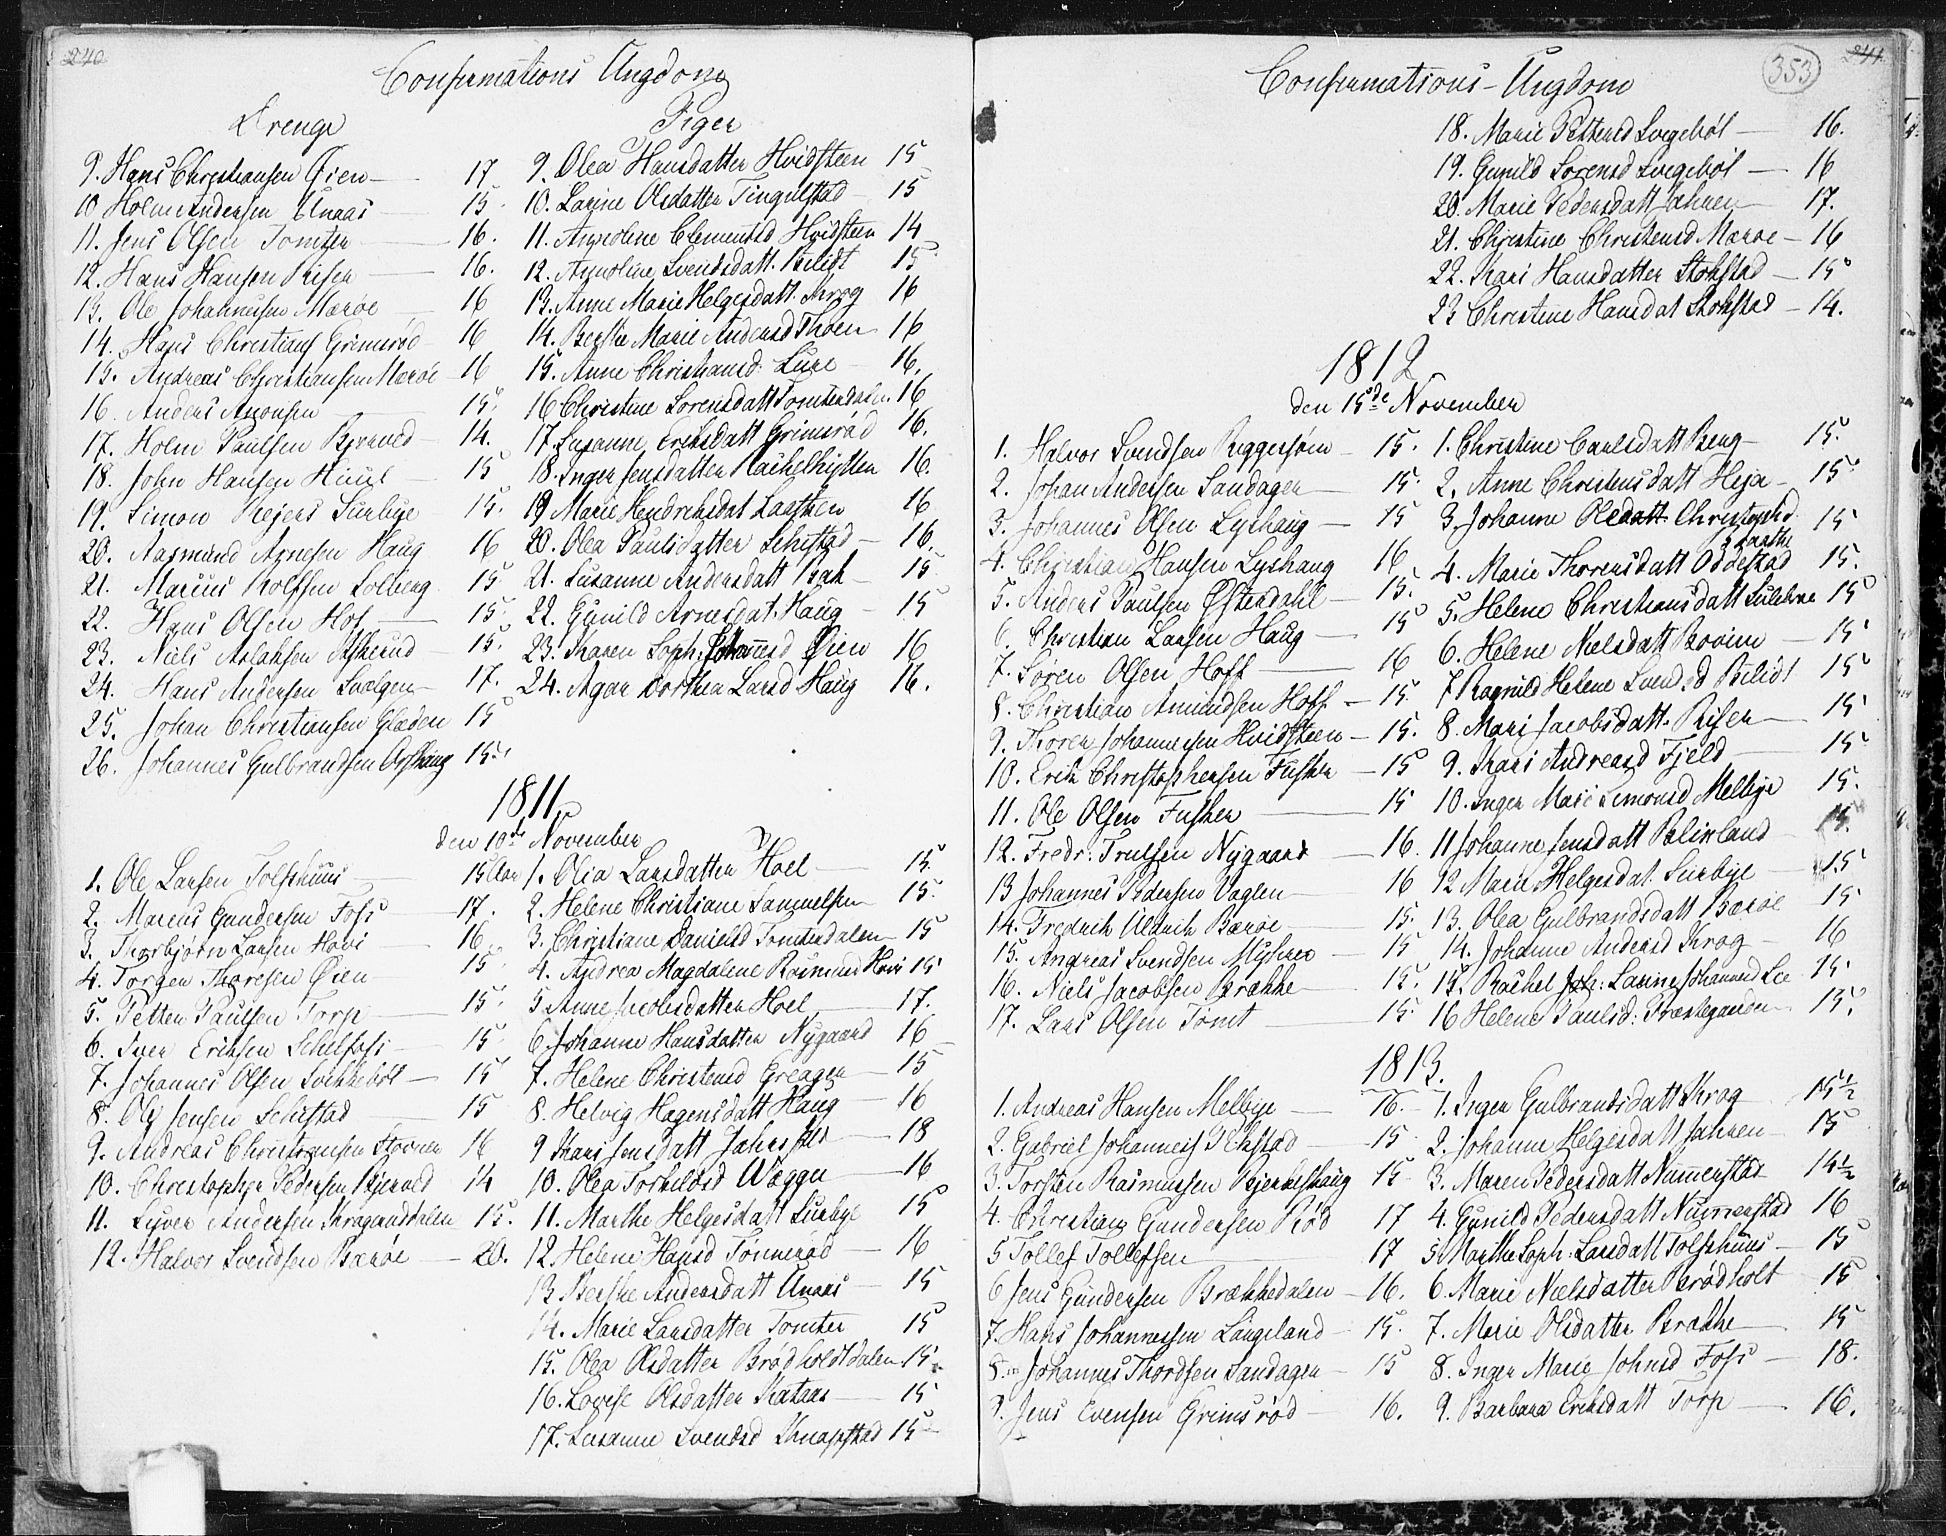 240
Confirmations Ungdom
Drenge
9. Hans Christiansen Øien 17
10 Holm Andersen Unaas 15.
11. Jens Olsen Tomter 16.
12. Hans Hansen Riser 16.
13. Ole Johannesen Maroe 16
14. Hans Christians Grimsrød 16
15. Andreas Christiansen Maroe 16
16. Anders Aronsen 15.
17. Holm Paulsen 14.
18. John Hansen 15
19. Simon Rejers Surbye 15.
20. Aasmund Arnesen Haug 16
21. Marius Rolffsen Solberg 15.
22. Hans Olsen Hof 15.
23. Niels Aslaksen Askerud 15.
24. Hans Andersen 17.
25. Johan Christiansen Gladen 15
26. Johannes Gulbrandsen 15.
Piger
9. Olea Hansdatter Hvidsteen 15
10. Larine Olsdatter Tingulstad 15
11. Annoline Clementsd Hvidsteen 14
12. Annoline Svendsdatt. Bilidt 15.
13. Anne Marie Helgesdatt. Krog 16
14. Berthe Marie Andersd Thoen 16
15. Anne Christiansd. Lure 16.
16 Christine Sorensdatt Tomterdalen. 16
17 Susanne Eriksdatt Grimsrød 16.
18. Inger Jensdatter Rachelhytten 16.
19 Marie Hendrichsdat 16
20. Olea Paulsdatter Schistad 16.
21. Susanne Andersdatt Bak 15
22. Gunild Arnesdat. Haug 15
23. Karen Soph. Johannesd Øien 16
24. Agar Dorthea Larsd Haug 16.
1811.
den 10de November
1. Ole Larsen Tolfshuus 15 Aar
2. Marcus Gundersen Foss 17.
3. Thorbjørn Larsen Hovi 16
4. Torger Thoresen Øien 15
5. Petter Paulsen Torp 15.
6. Iver Eriksen Schelfoss 15
7. Johannes Olsen Svikkebøl 15
8. Ole Jensen Schistad 15
9. Andreas Christiansen 16
10. Christopher Pedersen 14
11. Syver Andersen Krageruddalen 15.
12. Halvor Svendsen Barøe 20.
1. Olia Larsdatter Hoel 15
2. Helene Christiane Samuelsen 15.
3. Christiane Danielsd Tomterdalen 15
4. Andrea Magdalene Rasmusd Hovi 15
5 Anne Jacobsdatter Hoel 17.
6. Johanne Hansdatter Nygaard 16
7. Helene Christensd 15
8. Helvig Hagensdatt Haug 16
9 Kari Jensdatt 18
10. Olea Torkildsd 16
11. Marthe Helgesdatt Surbye 15
12. Helene Hansd Tonnerød 16
13 Berthe Andersdatt Unaas 15
14. Marie Larsdatter Tomter 15
15. Olea Olsdatter Brødholdtdalen 15.
16. Lovise Olsdatter Rataas 15
17. Susanne Svendsd Knapstad 15
353
241
Confirmations-Ungdom
18. Marie Pettersd Svegebøl 16.
19. Gunild Sorensd Svegebøl 16
20. Marie Pedersdatt Jahren 17.
21. Christine Christensd Maroe 16
22. Kari Hansdatter Stokstad 15
23 Christine Hansdat Stokstad 14.
1812
den 15de November
1. Halvor Svendsen 15.
2. Johan Andersen Sandager 15.
3. Johannes Olsen Lyshaug 15
4. Christian Hansen Lyshaug 16
5. Anders Paulsen Østerdahl 15.
6. Christian Larsen Haug 15
7. Søren Olsen Hoff 16
8. Christian Amundsen Hoff 15.
9. Thorer Johannesen Hvidsteen 15.
10. Erik Christophersen Fusker 15
11. Ole Olsen Fusker 15
12. Fredr: Trulsen Nygaard 16.
13 Johannes Pedersen Vaglen 16
14. Fredrik Uldrik Barøe 15.
15. Andreas Svendsen Myhrer 15
16. Niels Jacobsen Brakke 15.
17. Lars Olsen Tomt 15.
1. Christine Carlsdatt Berg 15.
2. Anne Christensdatt Heja 15.
3. Johanne Oledatt Christophd 15
4. Marie Thorersdatt Oddestad 15.
5. Helene Christiansdatt 15
6. Helene Nielsdatt Bovim 15
7 Ragnild Helene Svendsd Bilidt 15
8. Mari Jacobsdatt. Riser 15
9. Kari Andreasd Fjeld 15
10. Inger Mari Simonsd Melbye 15.
11 Johanne Jensdatt 15.
12 Marie Helgesdat. Surbye 15
13. Olea Gulbrandsdatt Barøe 15
14. Johanne Andersd Krog 16
15. Rachel Joh: Larine Johannesd Lee 15
16 Helene Paulsd: Præstegaarden 15.
1813.
1. Andreas Hansen Melbye 16.
2. Gabriel Johanness Ekstad 15
3. Torsten Rasmussen Bjerkelshaug 15
4. Christian Gundersen Rød 17
5 Tollef Tollefsen 17
6 Jens Gundersen Brækkedalen 16.
7. Hans Johannessen Langeland 15.
8. Johannes Thordsen Sandager 15
9. Jens Evensen Grimsrød 16.
1. Inger Gulbrandsdatt Krog 15½
2. Johanne Helgesdatt Jahren 15
3. Maren Pedersdatt Nummestad 14½
4. Gunild Pedersdatt Nummestad 16
5 Marthe Soph: Larsdatt Tolfshuus 15
6. Marie Nielsdatter Brødholt 15
7. Marie Olsdatter Brakke 15
8. Inger Marie Johnsd Foss 18.
9. Barbara Eriksdatt Torp 16.